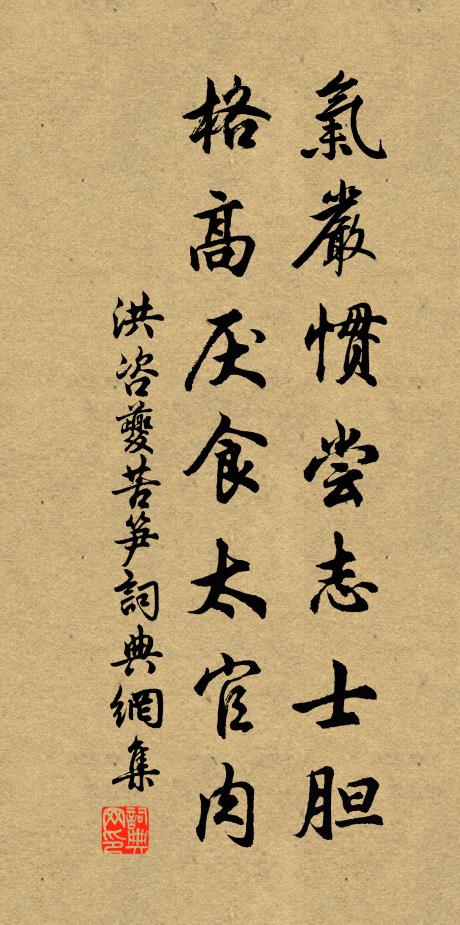 氣嚴惯尝志士胆
格高厌食太官肉
洪咨夔苦笋詞典網集
詞典网印